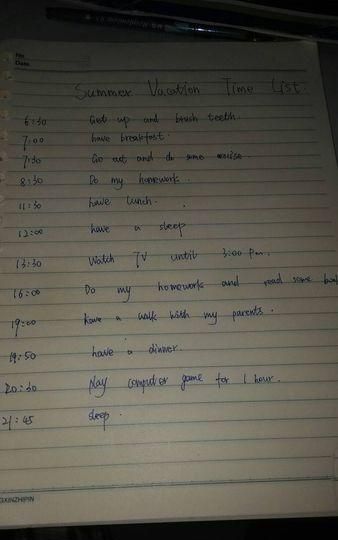 No.
Date.
Summer Vacation Time List.
6:30 Get up and brush teeth.
7:00 have breakfast.
7:30 Go out and do some
8:30 Do my homework.
11:30 have lunch.
12:00 have a sleep
13:30 Watch TV until 3:00 P.m.
16:00 Do my homework and read some
19:00 have a walk with my parents.
19:50 have a dinner.
20:30 play computer game for 1 hour.
21:45 sleep.
GXINZHIPIN